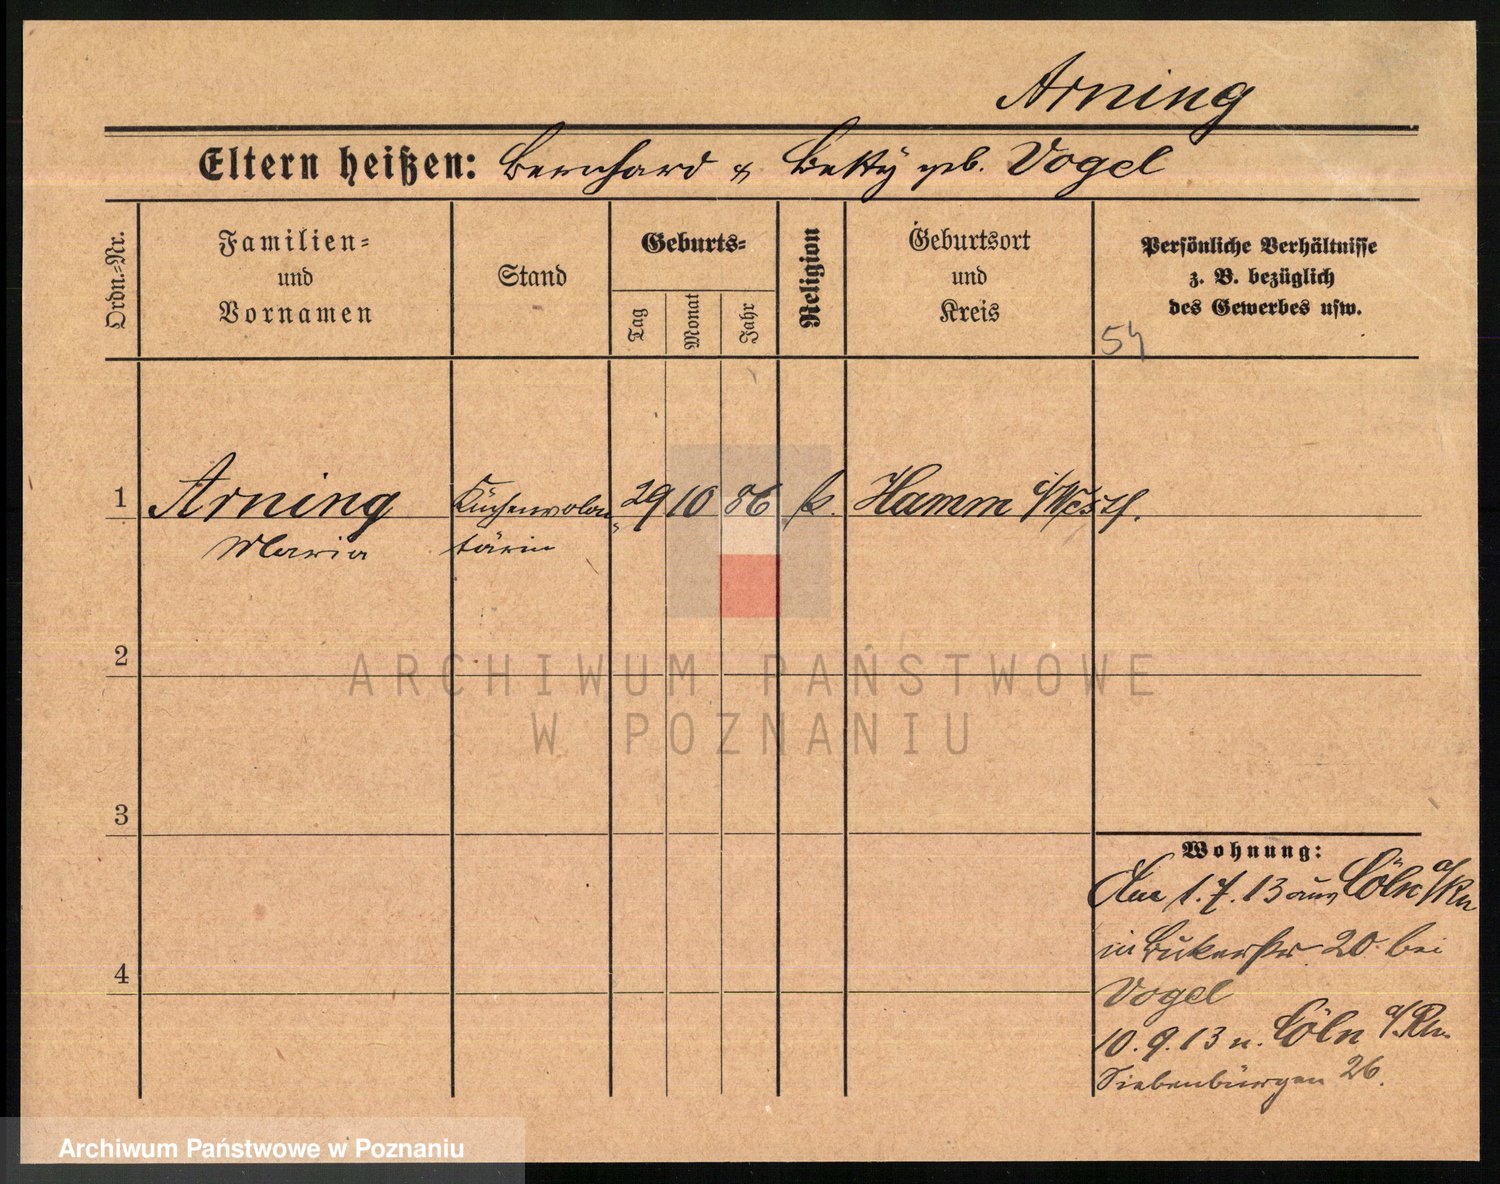 Arning
Eltern heißen: Bernhard & Betty geb. Vogel
Ordn.-Nr.
Familien-
und
Vornamen
Stand
Geburts-
Tag
Monat
Jahr
Religion
Geburtsort
und
Kreis
Persönliche Verhältnisse
z. B. bezüglich
des Gewerbes usw.
54
1 Arning Küchenvolon- 29 10 86 k. Hamm i/Westf.
Maria tärin
2
ARCHIWUM PAŃSTWOWE
W POZNANIU
3
Wohnung:
1.7.13 aus Cöln a/Rh
in Bukerstr 20 bei
4
Vogel
10.9.13 n. Cöln a/Rh.
Siebenbürgen 26.
Archiwum Państwowe w Poznaniu